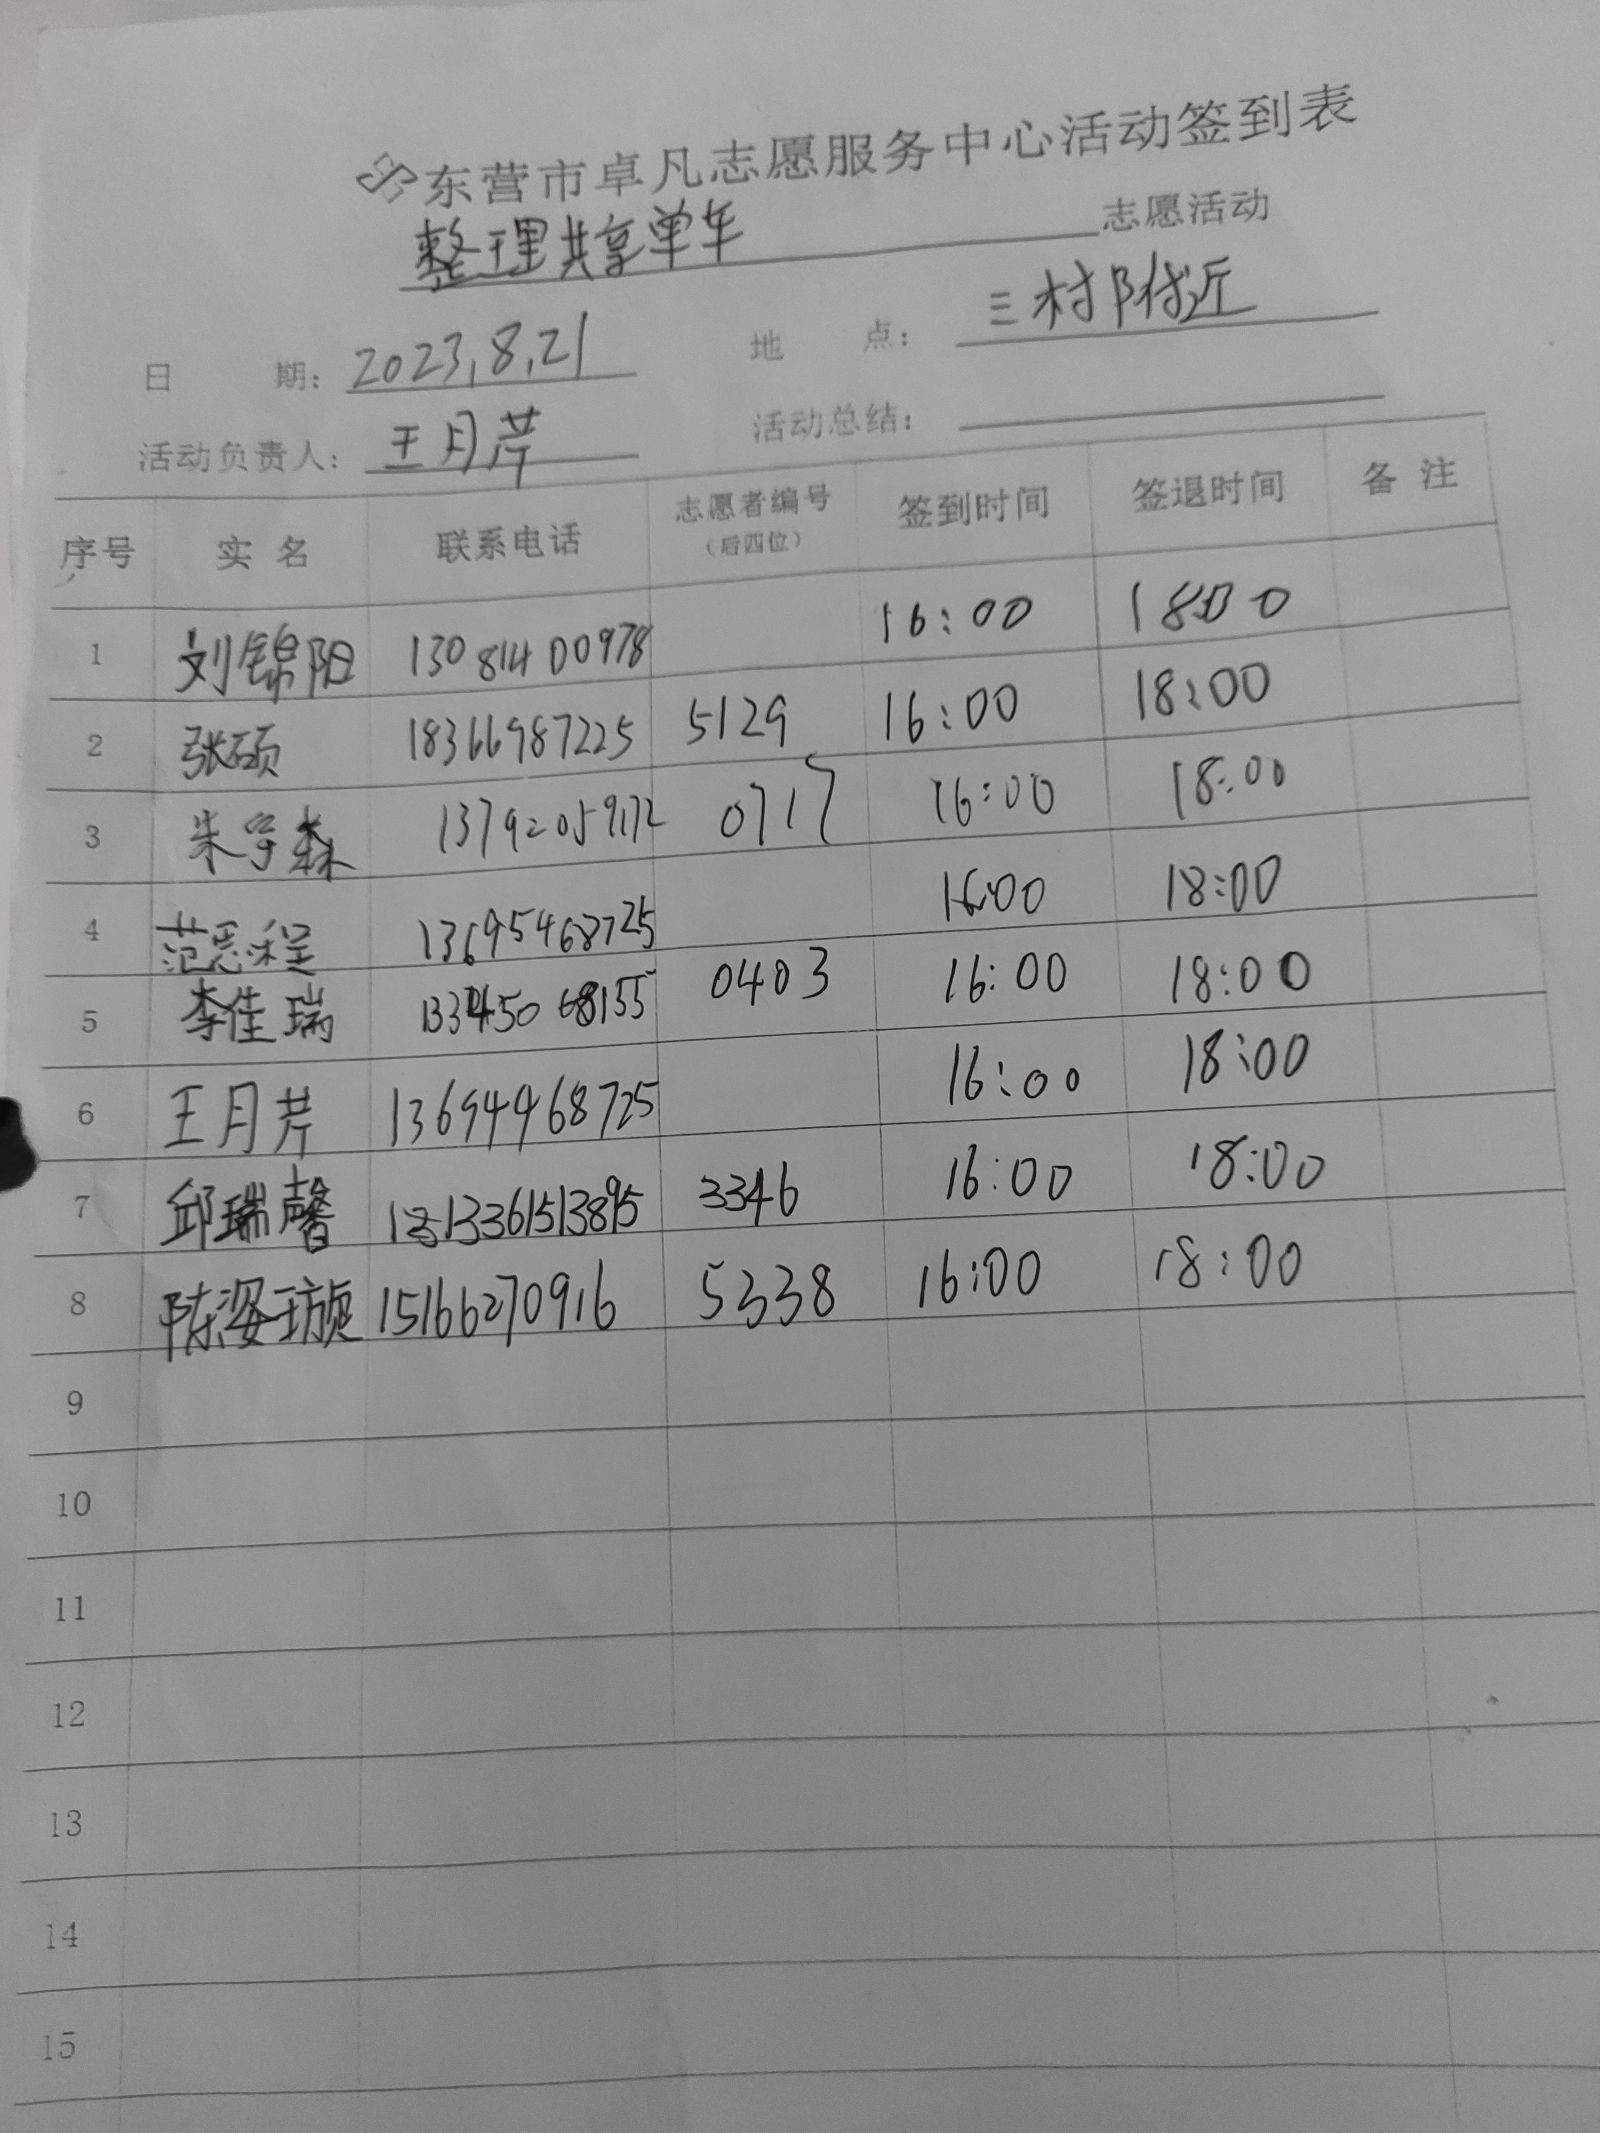 东营市卓凡志愿服务中心活动签到表
整理共享单车 志愿活动
日 期: 2023,8,21 地 点: 三村附近
活动负责人: 王月芹 活动总结:
序号 实名 联系电话 志愿者编号（后四位） 签到时间 签退时间 备注
1 刘锦阳 13081400978 16:00 18:00
2 张硕 18366987225 5129 16:00 18:00
3 朱宇森 13792059172 0717 16:00 18:00
4 范恩程 13695468725 16:00 18:00
5 李佳瑞 0403 16:00 18:00
6 王月芹 13694468725 16:00 18:00
7 邱瑞馨 3346 16:00 18:00
8 陈姿璇 15166270916 5338 16:00 18:00
9
10
11
12
13
14
15